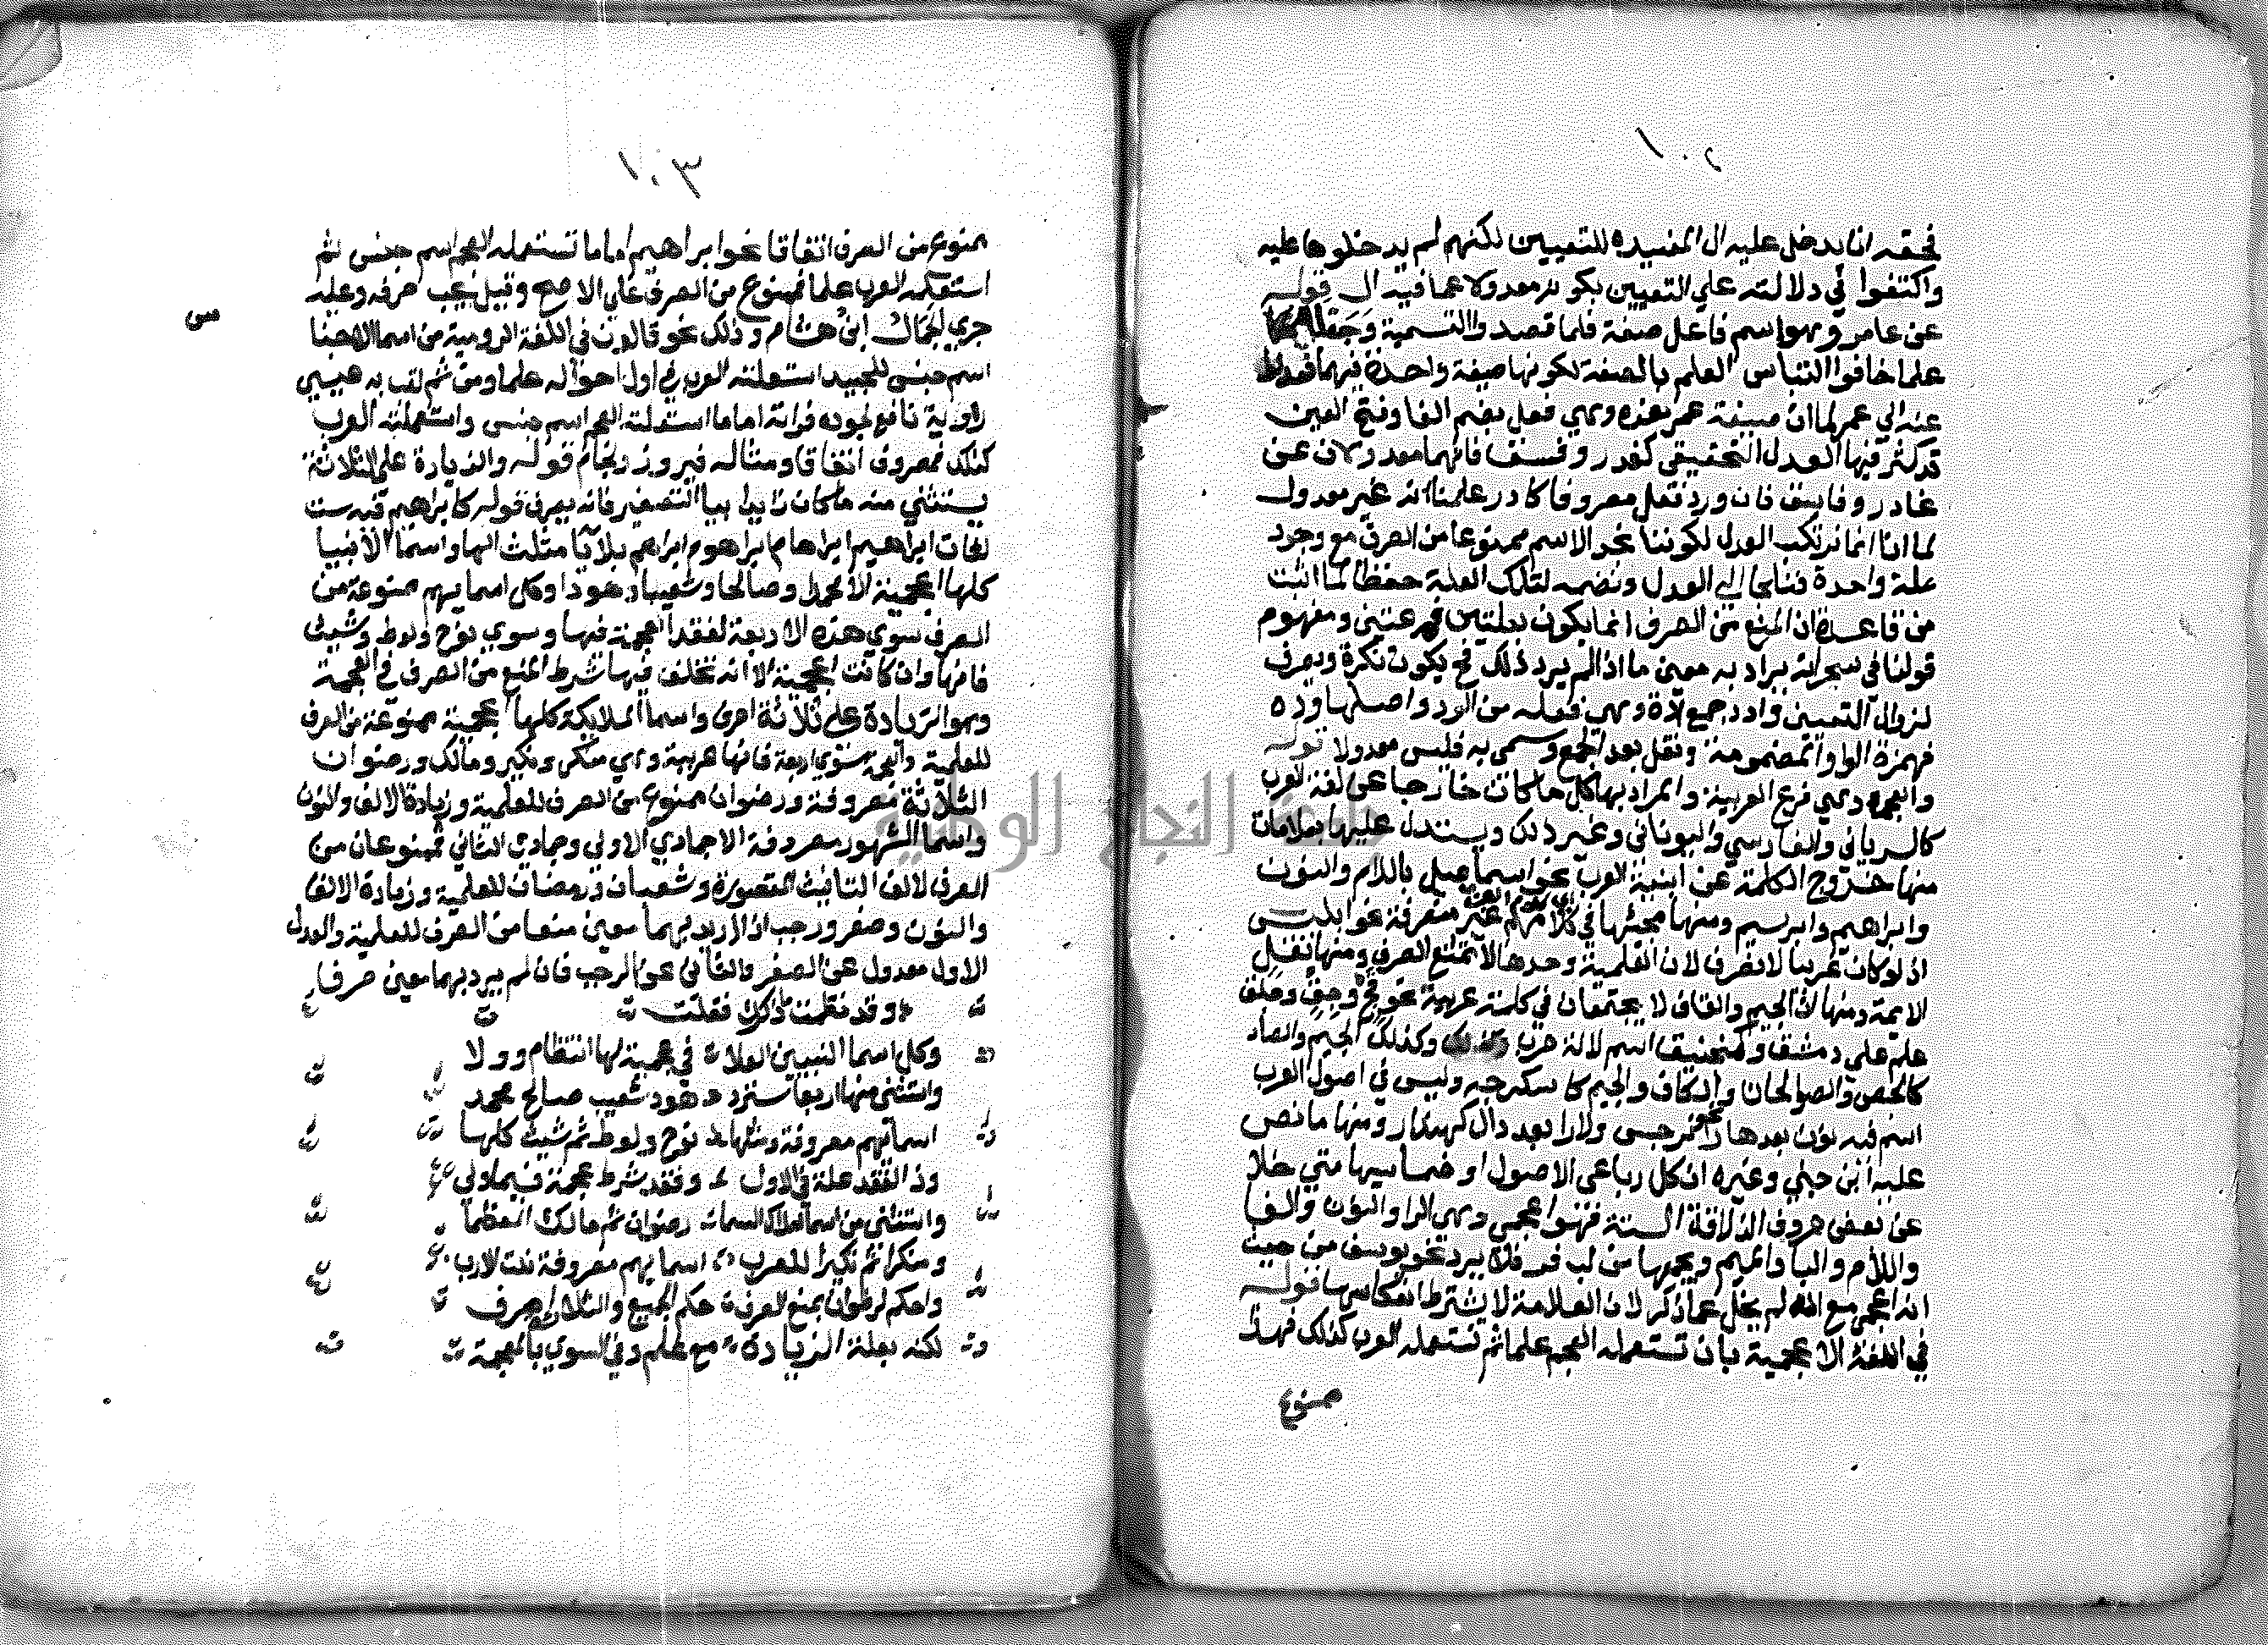 ١٠٢
فحقه ان يدخل عليه ال المفيده للتعيين لكنهم لم يدخلوها عليه
واكتفوا في دلالته علي التعيين بكونه معدولا عما فيه ال قوله
عن عامر وهو اسم فاعل صفة فلما قصد والتسمية وجعله
علما خافوا التباس العلم بالصفة لكونها صيغة واحدة فيهما فعدلوا
عنه الي عمر لما ان صيغة عمر هذه وهي فعل بضم الفا وفتح العين
قد كثر فيها العدل التحقيقي كغدر وفسق فانهما معدولان عن
غادر وفاسق فان ورد فعل مصروفا كادد علمنا انه غير معدول
لما اننا انما نرتكب العدل لكوننا نجد الاسم ممنوعا من الصرف مع وجود
علة واحدة فنلجا الي العدل ونضمه لتلك العلة حفظا لما اثبت
من قاعدة ان المنع من الصرف انما يكون بعلتين فرعيتين ومفهوم
قولنا في سحر انه يراد به معين ما اذا لم يرد ذلك فح يكون نكرة ويصرف
لزوال التعيين وادد جمع ادة وهي فعلة من الود واصلها ودة
فهمزة الواو المضمومة ونقل بعد الجمع وسمي به فليس معدولا قوله
والعجمة وهي فرع العربية والمراد بها كل ما كان خارجا عن لغة العرب
كالسرياني والفارسي واليوناني وغير ذلك ويستدل عليها بعلامات
منها خروج الكلمة عن ابنية العرب نحو اسماعيل باللام والنون
وابراهيم وابرسيم ومنها مجيئها في كلامهم غير منصرفة نحو ابليس
اذ لو كان عربيا لانصرف لان العلمية وحدها لا تمنع الصرف ومنها نقل
الايمة ومنها ان الجيم والقاف لا يجتمعان في كلمة عربية نحو قج وجق وجلق
علم علي دمشق ومنجنيق اسم لالة حرب وكذلك الجيم والصاد
كالجص والصولجان والكاف والجيم كاسكرجه وليس في اصول العرب
اسم فيه نون بعدها را نحو نرجس ولا را بعد دال كهندار ومنها ما نص
عليه ابن جني وغيره ان كل رباعي الاصول او خماسيها متي خلا
عن بعض حروف الذلاقة الستة فهو اعجمي وهي الرا والنون والفا
واللام والبا والميم ويجمعها من لب فر فلا يرد نحو يوسف من حيث
انه اعجمي مع انه لم يخل عما ذكر لان العلامة لا يشترط انعكاسها قوله
في اللغة الاعجمية بان تستعمله العجم علما ثم تستعمله العرب كذلك فهذا
ممنوع
١٠٣
ممنوع من الصرف اتفاقا نحو ابراهيم اما ما تستعمله العجم اسم جنس ثم
استعمله العرب علما فممنوع من الصرف علي الاصح وقيل يجب صرفه وعليه
جري الجمال ابن هشام وذلك نحو قالون في اللغة الرومية من اسما الاجنا
س
اسم جنس للجيد استعملته العرب في اول احواله علما ومن ثم لقب به عيسي
راوية نافع لجوده قراته اما ما استعملته العجم اسم جنس واستعملته العرب
كذلك فمصروف اتفاقا ومثاله فيروز ولجام قوله والزيادة علي الثلاثة
يستثني منه ما كان زايدا بيا التصغير فانه يصرف قوله كابراهيم فيه ست
لغات ابراهيم ابراهام ابراهوم ابراهم بلا يا مثلث الها واسما الانبيا
كلها اعجمية الا محمدا وصالحا وشعيبا وهودا وكل اسمايهم ممنوعة من
الصرف سوي هذه الاربعة لفقد العجمة فيها وسوي نوح ولوط وشيث
فانها وان كانت اعجمية الا انه تخلف فيها شرط المنع من الصرف في العجمة
وهو الزيادة علي ثلاثة احرف واسما الملايكة كلها اعجمية ممنوعة من الصرف
للعلمية والعجمة سوي اربعة فانها عربية وهي منكر ونكير ومالك ورضوان
الثلاثة مصروفة ورضوان ممنوع من الصرف للعلمية وزيادة الالف والنون
واسما الشهور مصروفة الا جمادي الاولي وجمادي الثاني فممنوعان من
الصرف لالف التانيث المقصورة وشعبان ورمضان للعلمية وزيادة الالف
والنون وصفر ورجب اذا اريد بهما معين منعا من الصرف للعلمية والعدل
الاول معدول عن الصفر والثاني عن الرجب فان لم يرد بهما معين صرفا
وقد نظمت ذلك فقلت
وكل اسما النبيين العلا في عجمية لها انتظام وولا
واستثني منها اربعا ستزد هود شعيب صالح محمد
اسمايهم معروفة ومثلها نوح ولوط ثم شيث كلها
وذا لفقد علة في الاول وفقد شرط عجمة فيما ولي
واستثني من اسما ملاك السما رضوان ثم مالك المعظما
ومنكرا ثم نكيرا للعرب اسمايهم معروفة نلت الارب
واحكم لرضوان بمنع الصرف حكم الجميع والثلاث اصرف
لكنه بعلة الزيادة مع علم وفي السوي بالعجمة